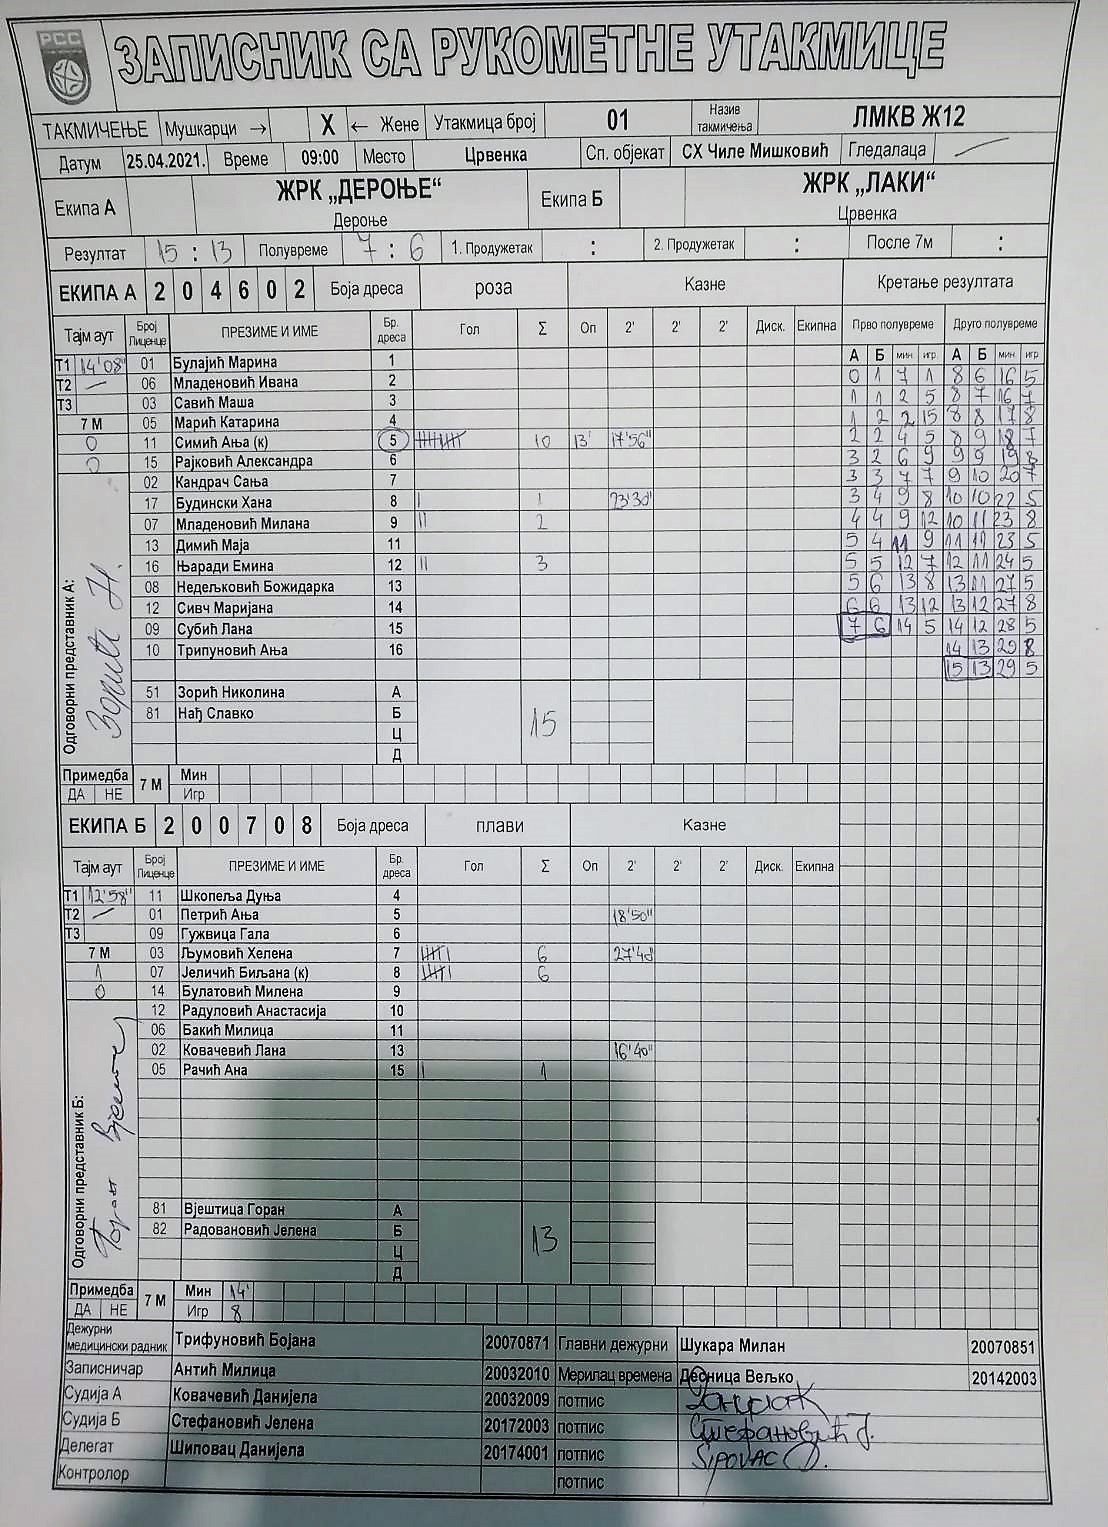 РСС
ЗАПИСНИК СА РУКОМЕТНЕ УТАКМИЦЕ
ТАКМИЧЕЊЕ Мушкарци → X ← Жене Утакмица број 01 Назив такмичења ЛМКВ Ж12
Датум 25.04.2021. Време 09:00 Место Црвенка Сп. објекат СХ Чиле Мишковић Гледалаца
Екипа А ЖРК „ДЕРОЊЕ“ Дероње Екипа Б ЖРК „ЛАКИ“ Црвенка
Резултат 15 : 13 Полувреме 7 : 6 1. Продужетак : 2. Продужетак : После 7м :
ЕКИПА А 2 0 4 6 0 2 Боја дреса роза Казне Кретање резултата
Тајм аут Број Лиценце ПРЕЗИМЕ И ИМЕ Бр. дреса Гол Σ Оп 2' 2' 2' Диск. Екипна Прво полувреме Друго полувреме
А Б мин игр. А Б мин. игр
Т1 14'08" 01 Булајић Марина 1 0 1 7 1 8 6 16 5
Т2 – 06 Младеновић Ивана 2 1 1 2 5 8 7 16 7
Т3 03 Савић Маша 3 1 2 2 15 8 8 17 8
7 М 05 Марић Катарина 4 2 2 4 5 8 9 18 7
0 11 Симић Ања (к) 5 10 13' 17'56" 3 2 6 9 9 9 19 8
0 15 Рајковић Александра 6 3 3 7 7 9 10 20 7
02 Кандрач Сања 7 3 4 9 8 10 10 22 5
17 Будински Хана 8 I 1 23'30" 4 4 9 12 10 11 23 8
07 Младеновић Милана 9 II 2 5 4 11 9 11 11 23 5
13 Димић Маја 11 5 5 12 7 12 11 24 5
16 Њаради Емина 12 II 3 5 6 13 8 13 11 27 5
08 Недељковић Божидарка 13 6 6 13 12 13 12 27 8
12 Сивч Маријана 14 7 6 14 5 14 12 28 5
09 Субић Лана 15 14 13 29 8
10 Трипуновић Ања 16 15 13 29 5
51 Зорић Николина А
81 Нађ Славко Б 15
Ц
Д
Одговорни представник А: Зорић Н.
Примедба ДА НЕ 7 М Мин Игр.
ЕКИПА Б 2 0 0 7 0 8 Боја дреса плави Казне
Тајм аут Број Лиценце ПРЕЗИМЕ И ИМЕ Бр. дреса Гол Σ Оп 2' 2' 2' Диск. Екипна
Т1 12'58" 11 Шкопеља Дуња 4
Т2 – 01 Петрић Ања 5 18'50"
Т3 09 Гужвица Гала 6
7 М 03 Љумовић Хелена 7 6 27'48"
1 07 Јеличић Биљана (к) 8 6
0 14 Булатовић Милена 9
12 Радуловић Анастасија 10
06 Бакић Милица 11
02 Ковачевић Лана 13 16'40"
05 Рачић Ана 15 I 1
81 Вјештица Горан А
82 Радовановић Јелена Б 13
Ц
Д
Одговорни представник Б: Горан
Примедба ДА НЕ 7 М Мин 14' Игр. 8
Дежурни медицински радник Трифуновић Бојана 20070871 Главни дежурни Шукара Милан 20070851
Записничар Антић Милица 20032010 Мерилац времена Десница Вељко 20142003
Судија А Ковачевић Данијела 20032009 потпис
Судија Б Стефановић Јелена 20172003 потпис Стефановић Ј.
Делегат Шиповац Данијела 20174001 потпис ŠIPOVAC D.
Контролор потпис